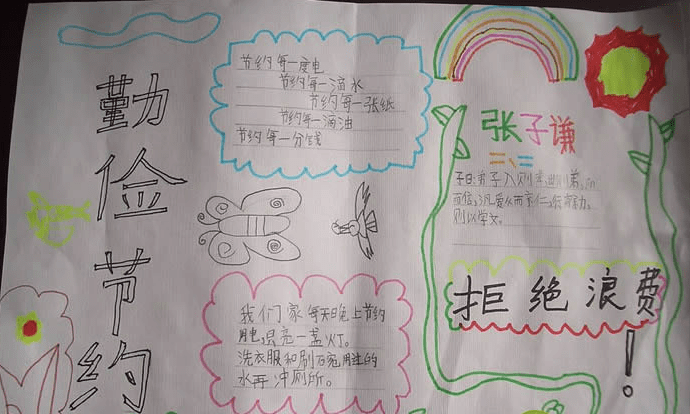 勤俭节约
节约每一度电
节约每一滴水
节约每一张纸
节约每一滴油
节约每一分钱
我们家每天晚上节约
用电,只亮一盏灯。
洗衣服和刷碗用过的
水再冲厕所。
张子谦
二、三
子曰:弟子入则孝,出则弟,
而信,汎爱众而亲仁,行有余力,
则以学文。
拒绝浪费!